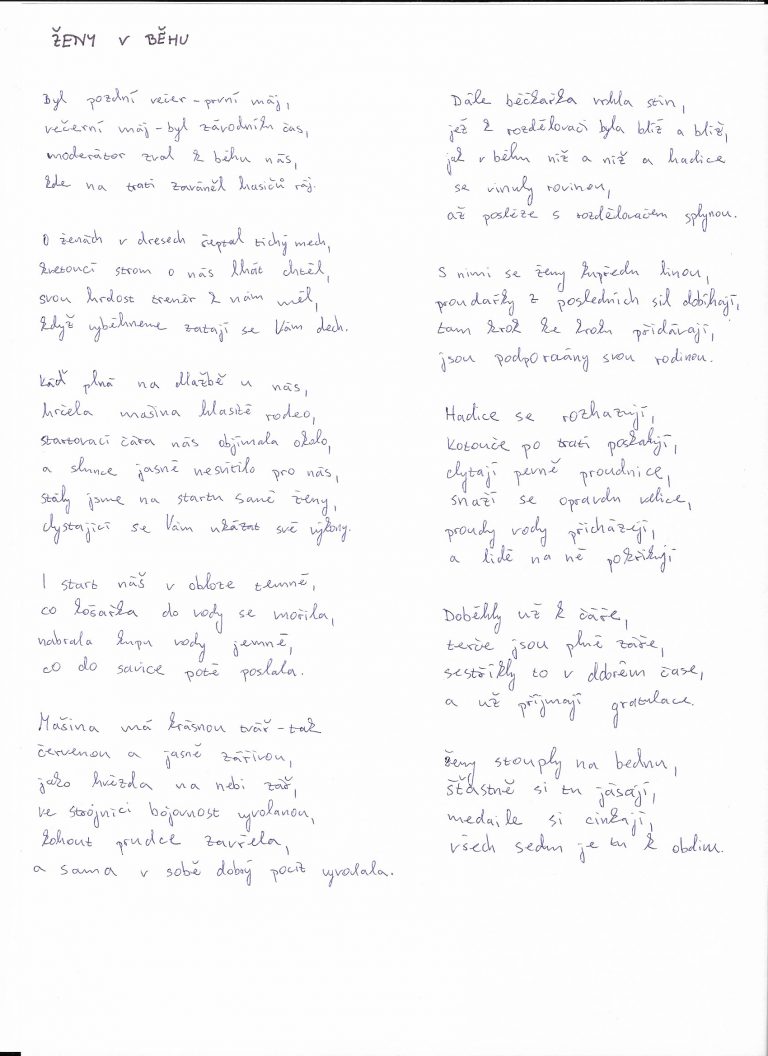 ŽENY V BĚHU
Byl pozdní večer – první máj,
večerní máj – byl závodníků čas,
moderátor zval k běhu nás,
kde na trati zaváněl hasičů ráj.
O ženách v dresech šeptal tichý mech,
kvetoucí strom o nás lhát chtěl,
svou hrdost trenér k nám měl,
když vyběhneme zatají se Vám dech.
Káď plná na dlažbě u nás,
hrčela mašina hlasitě rodeo,
startovací čára nás objímala okolo,
a slunce jasně nesvítilo pro nás,
stály jsme na startu samé ženy,
chystající se Vám ukázat své výkony.
I start náš v obloze temné,
co košařka do vody se mořila,
nabrala kupu vody jemně,
co do savice poté poslala.
Mašina má krásnou tvář – tak
červenou a jasně zářivou,
jako hvězda na nebi zář,
ve strojnici bojovnost vyvolanou,
kohout prudce zavřela,
a sama v sobě dobrý pocit vyvolala.
Dále béčkařka vrhla stín,
jež k rozdělovači byla blíž a blíž,
jak v běhu níž a níž a hadice
se vinuly rovinou,
až posléze s rozdělovačem splynou.
S nimi se ženy kupředu linou,
proudařky z posledních sil dobíhají,
tam krok ke kroku přidávají,
jsou podporaány svou rodinou.
Hadice se rozhazují,
kotouče po trati poskakují,
chytají pevně proudnice,
snaží se opravdu velice,
proudy vody přicházejí,
a lidé na ně pokřikují
Doběhly už k čáře,
terče jsou plné záře,
sestřikly to v dobrém čase,
a už příjmají gratulace.
Ženy stouply na bednu,
šťastně si tu jásají,
medaile si cinkají,
všech sedm je tu k obdivu.